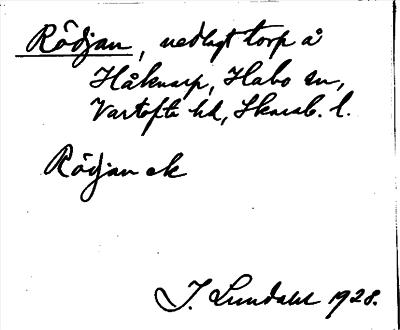 Rödjan, nedlagt torp å
Håknarp, Habo sn,
Vartofta hd, Skarab. l.
Rödjan ek
J. Lundahl 1928.